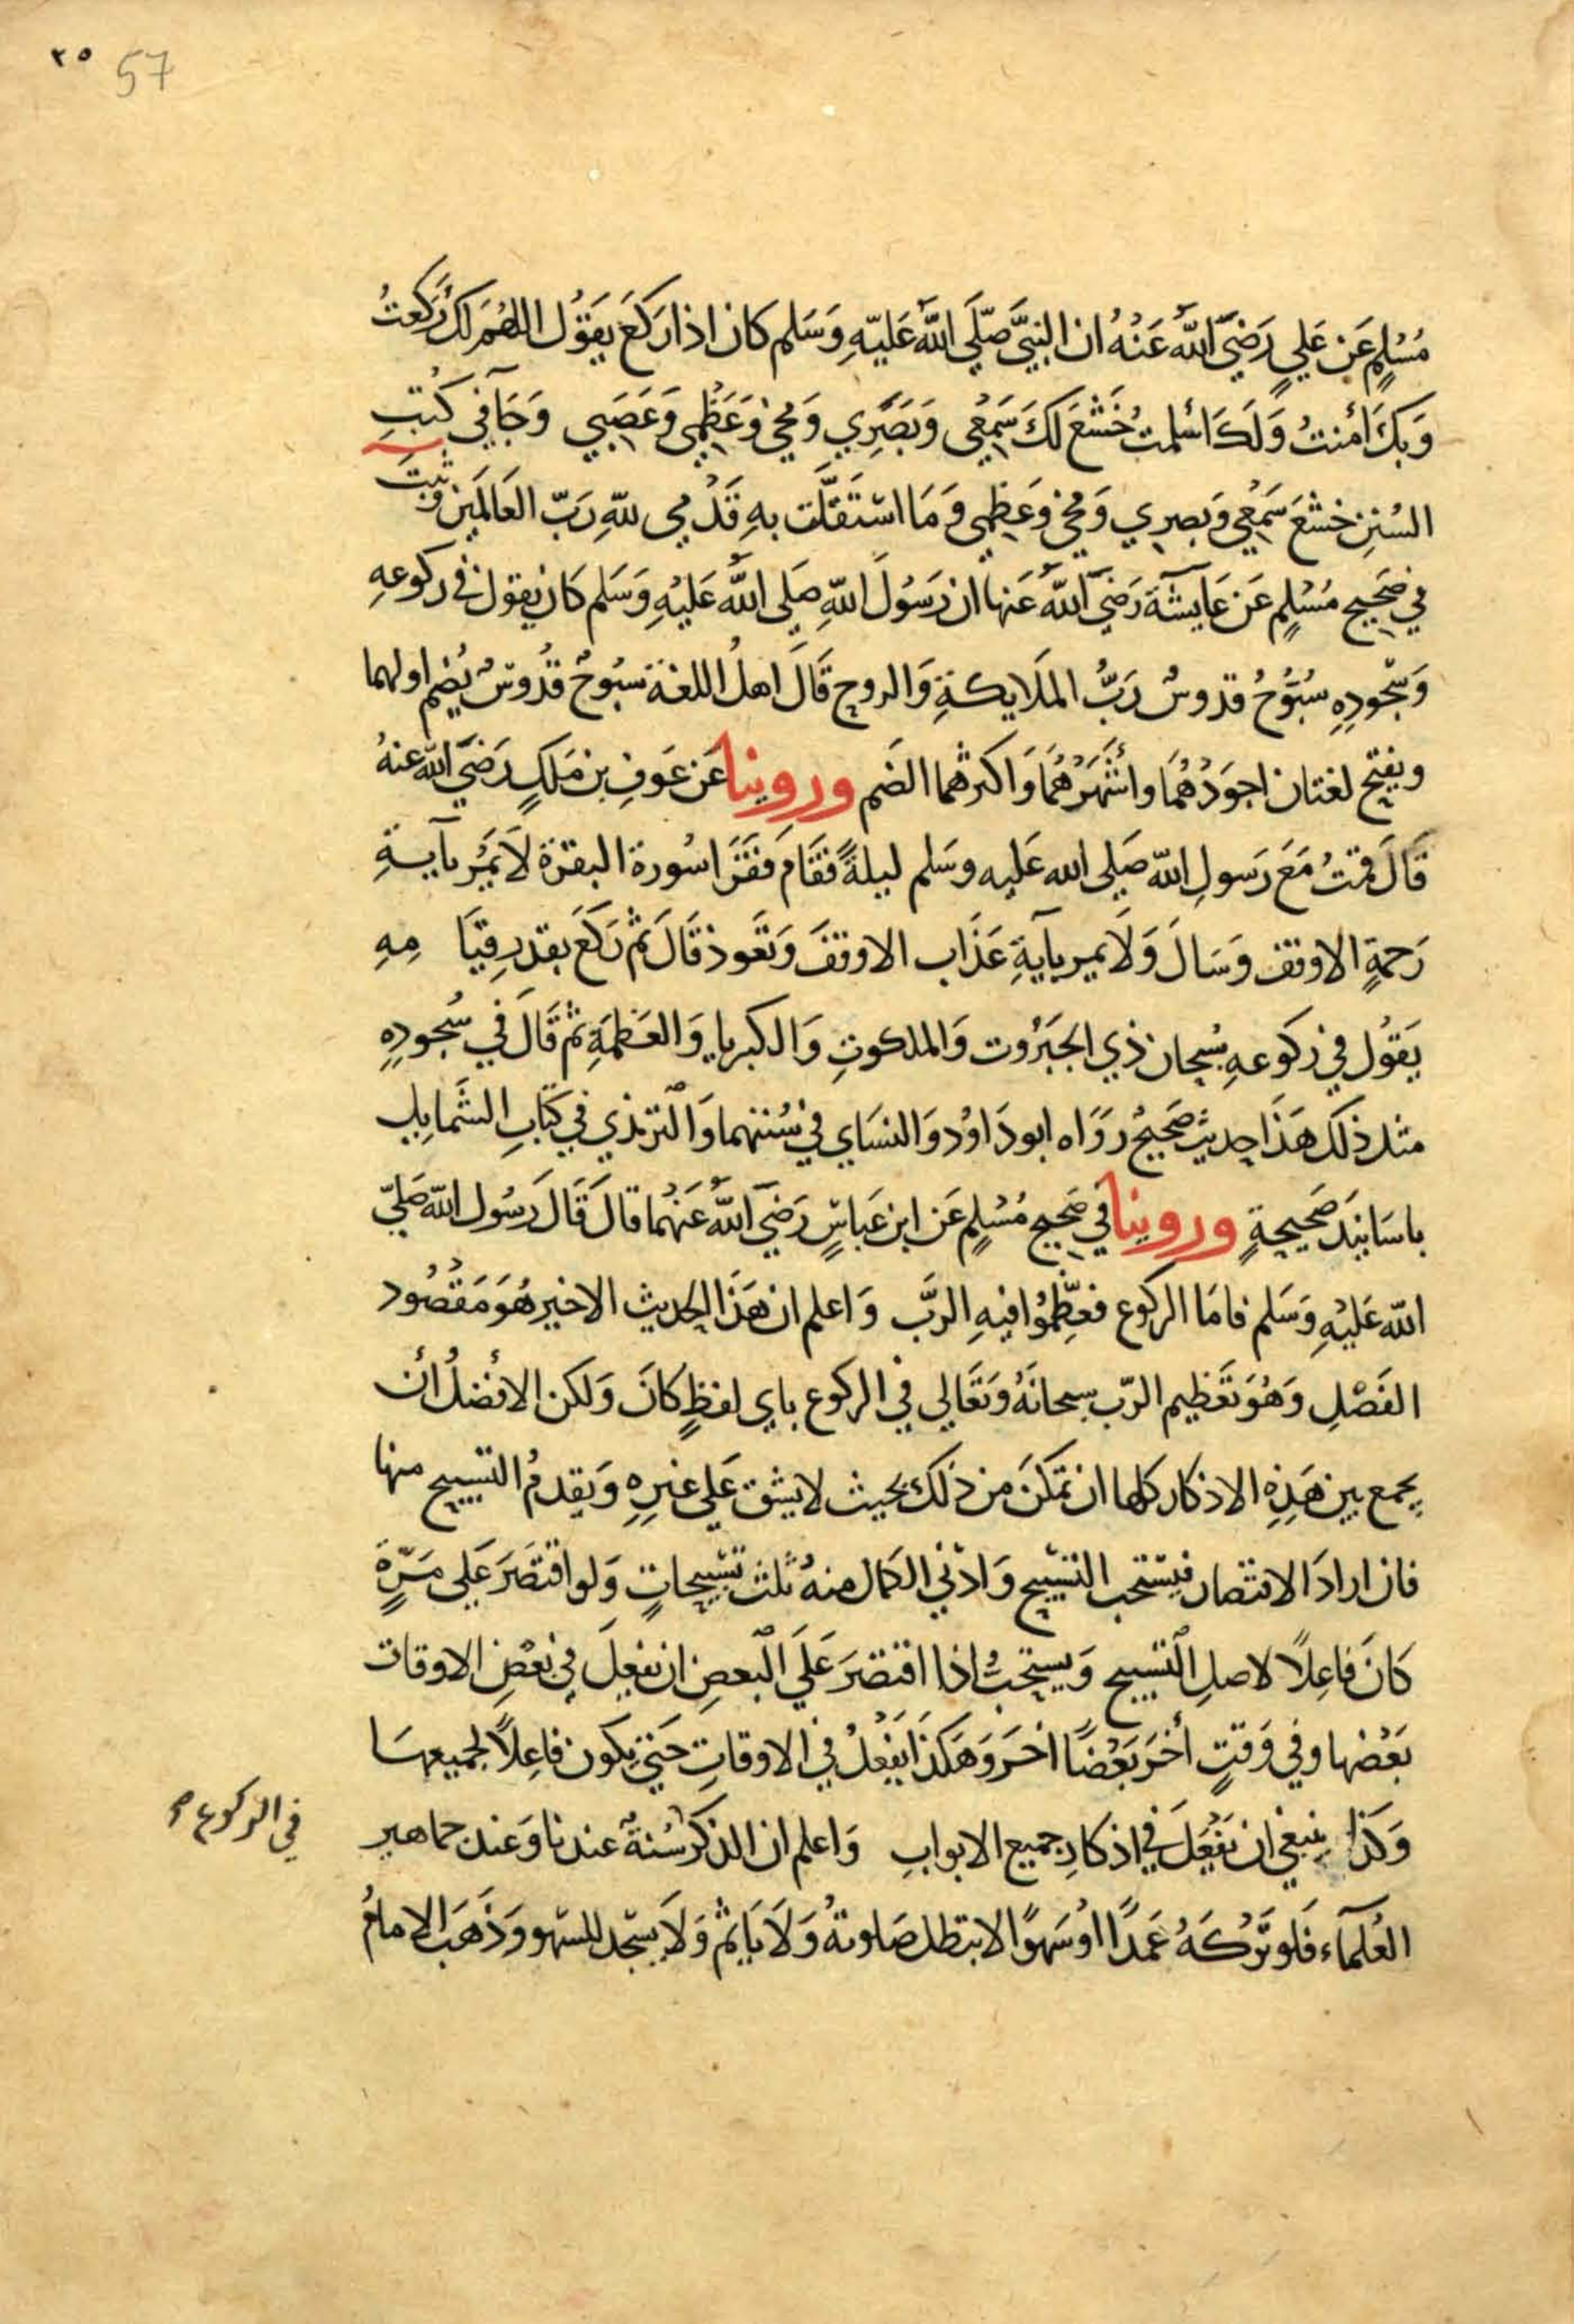 ٢٥ 57
مُسْلِمٍ عَن عَليٍ رَضِيَ اللّٰهُ عَنْهُ ان النبيَّ صَلَّي اللّٰهُ عَليّهِ وَسَلم كان اذا ركَعَ يقَوُل اللهُمَ لكَ رَكَعتُ
وَبكَ امنتُ وَلَكَ اسْلمت خَشَعَ لكَ سَمْعِي وَبَصَرِي وَمُخي وَعَظْمِي وَعَصَبِي وَجَآفي كُتبِ
السُنِن خشَعَ سَمْعِي وَبصرِي وَمُخي وَعَظِمي وَمَا اسْتَقَلَّت بهِ قَدَمِي للّهِ رَبّ العَالمَين وثبتَ
في صَحِيح مُسْلِمٍ عَن عَايشَةَ رَضِيَ اللّٰهُ عَنها ان رَسُولَ اللّهِ صَلي اللّٰهُ عَليْهِ وَسَلم كَان يقول في ركوعهِ
وَسُجُودِهِ سُبّوُحُ قدوسُ رَبُّ الملَايكةِ وَالروح قَالَ اهلُ اللغة سُبُوحُ قدُوسُ يُضم اولهما
ويفتح لغتان اجوَدُهُمَا واشْهَرُهُمَا وَاكثرهما الضَم وروينا عَن عَوفِ بن مَلكٍ رَضيَ اللّه عنهُ
قَالَ قمتُ مَعَ رَسولِ اللّه صَلي الله عَليه وسَلم ليلةً فقَامَ فقَرَا سُورة البقرة لاَ يَمُر بآيةِ
رَحمةٍ الا وقف وَسَالَ وَلاَ يمر بآيةِ عَذَاب الا وقفَ وَتَعوذ قَالَ ثم ركَعَ بقدرِ قيَا مِهِ
يَقوُل في ركَوعهِ سُبحان ذي الجبَرُوت وَالملكوتِ وَالكبريا وَالعَظمَةِ ثم قَالَ في سُجودِهِ
مثلَ ذلكَ هَذَا حديث صَحيحُ رَوَاه ابو دَاوُد وَالنسَاي في سُننهما وَالترمذي في كتَابِ الشَمايلِ
باسَانيدَ صَحيحةٍ وروينا في صَحيح مُسْلِمٍ عَن ابن عَباسٍ رَضيَ اللّٰهُ عَنهُما قالَ قَالَ رَسُول اللّه صَليّ
اللّه عَليْهِ وَسَلم فامَا الركوع فعظِّمُوا فيهِ الرَّب وَاعلم ان هَذَا الحديث الاخير هُوَ مَقصُود
الفَصْلِ وَهُوَ تَعظيم الرّب سبحانَهُ وَتَعَالي في الركوع باي لفظٍ كانَ وَلكن الافضلُ أن
يجمع بين هَذِهِ الاذكار كلها ان تمكَنَ من ذلكَ بحيث لا يشق عَلي غيرِهِ وَيقدمُ التسبيح منها
فان ارادَ الاقتصار فيستحب التسبيح وَادني الكمال منهُ ثلث تسبيحاتٍ وَلو اقتصَرَ عَلي مَرّةٍ
كَانَ فاعِلاً لاصلِ التسبيح وَيستحبُ اذا اقتصَرَ عَلَي البعضِ ان يفعلَ في بَعْضِ الاوقات
بَعْضها وفي وَقتٍ أخَرَ بَعْضاً اخَرَ وَهَكذَا يفَعْلُ في الاوقاتِ حَتي يكون فاعِلاً لجميعهَا
وَكذا ينبغي ان يفَعَلَ في اذكارِ جميع الابوابِ وَاعلم ان الذكرَ سُنةُ عندنا وَعند جماهير
في الركوع ص
العُلمآء فَلو تَرَكهُ عَمَدًا اوْ سَهوًا لا تبطل صَلوتهُ وَلاَ يَاثمْ وَلاَ يسَجد للسّهو وَذهَبَ الامامُ